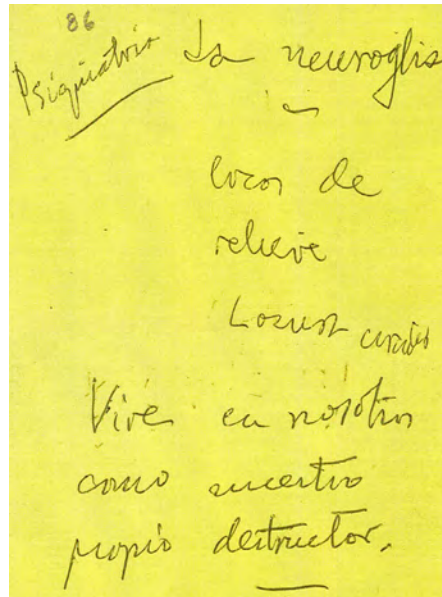 86
Psiquiatría La neuroglia
locos de
relieve
Vive en nosotros
como nuestro
propio destructor.